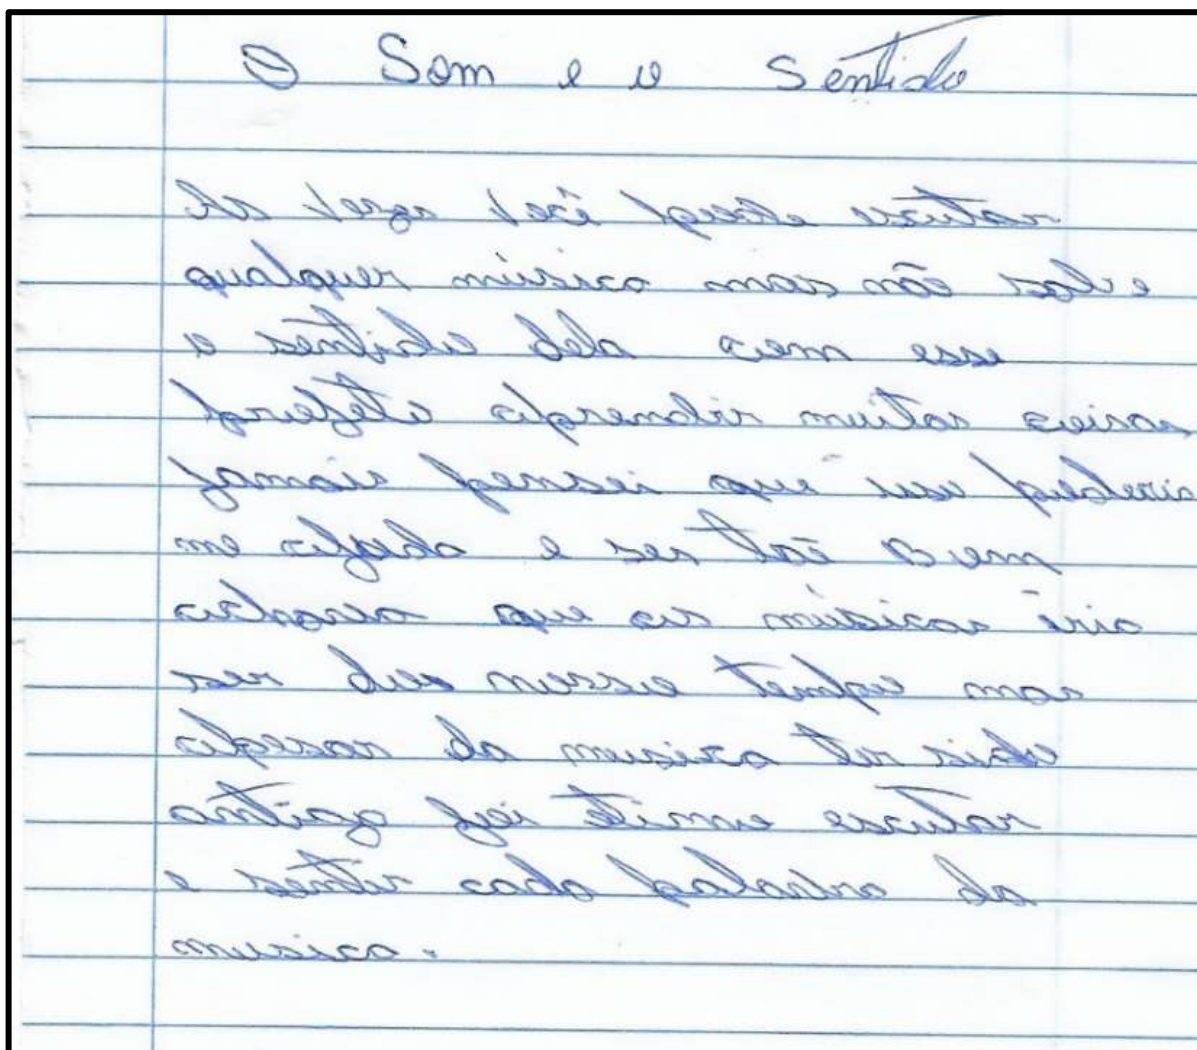 O Som e o Sentido
As vezes você pode escutar
qualquer música mas não sabe
o sentido dela com esse
projeto aprendir muitas coisas
jamais pensei que eu poderia
me e ser tão Bem
achava que as músicas iria
ser desse tempo mas
apesar da musica ter sido
antiga foi ótimo escutar
e sentir cada palavra da
musica.